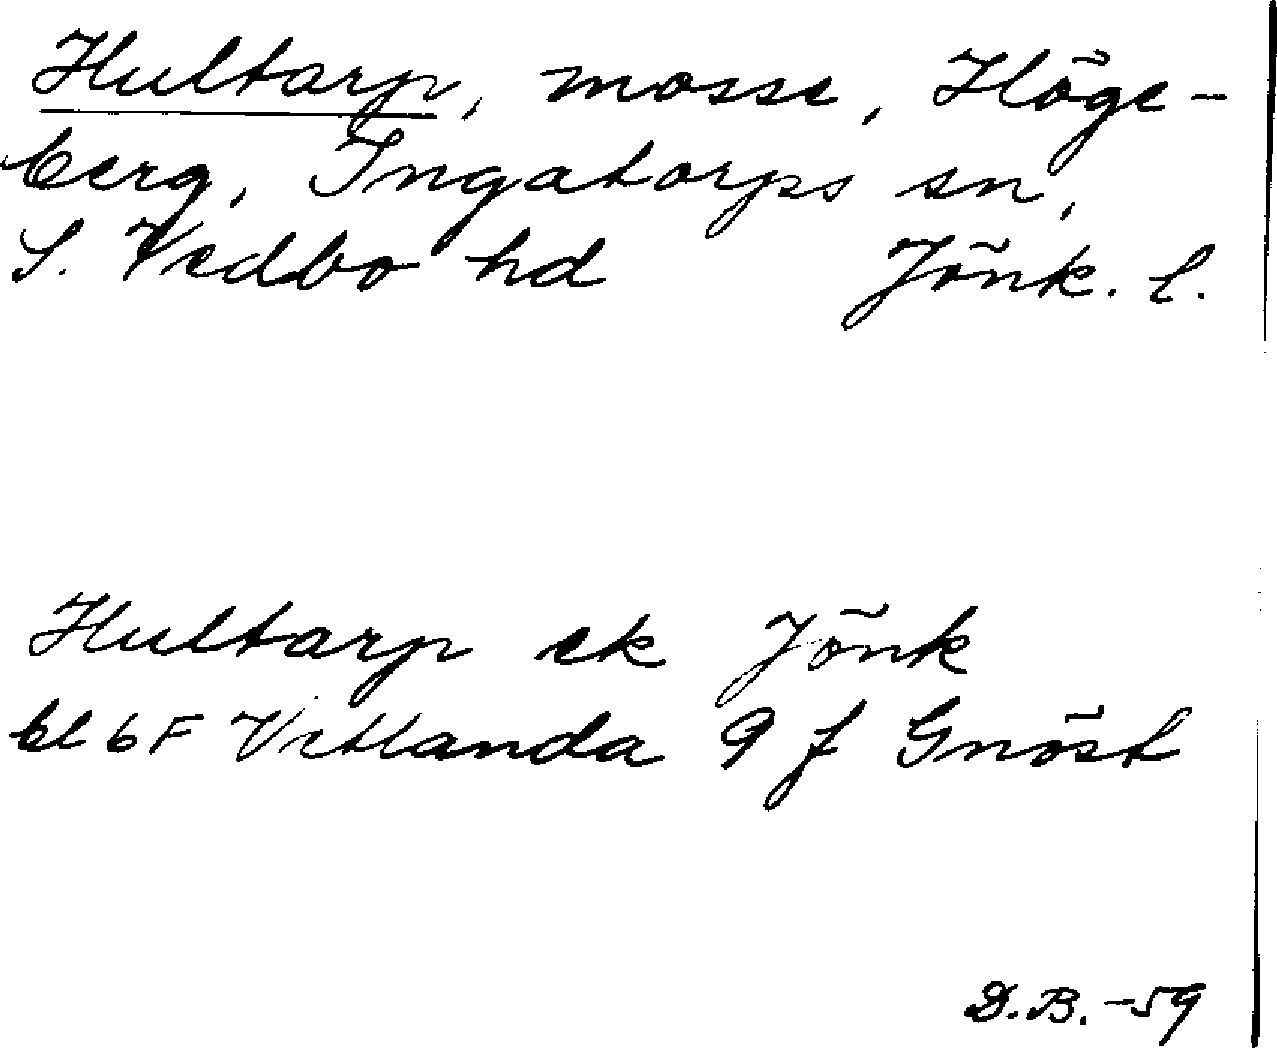 Hultarp, mosse, Höge-
berg, Ingatorps sn,
S. Vedbo hd Jönk. l.
Hultarp ek Jönk
bl 6F Vetlanda 9 f Gnöst
D.B. -59